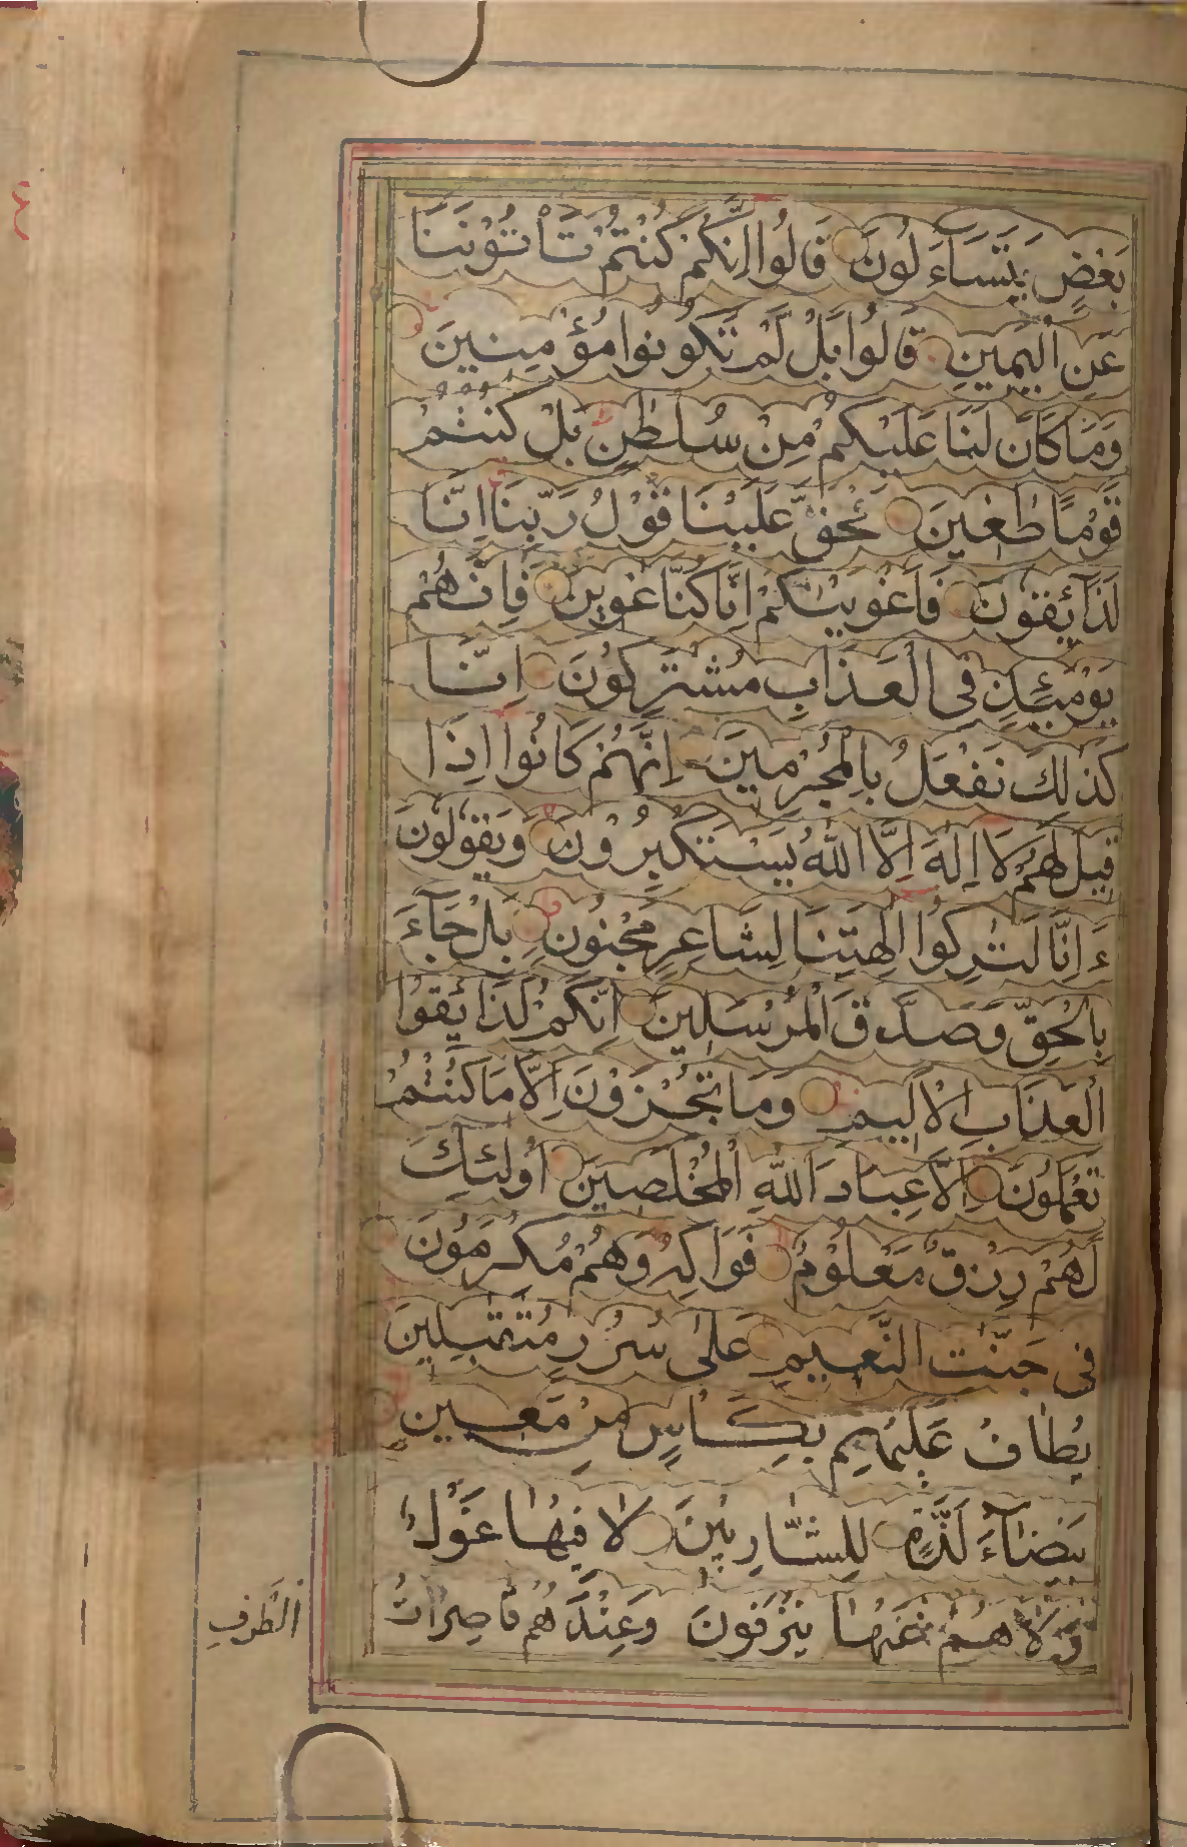 بَعْضٍ يَتَسَآءَ لُونَ قَالُوا اِنَّكُمْ كُنْتُمْ تَأْتُوْنَنَا
عَنِ الْيَمِينِ قَالُوا بَلْ لَّمْ تَكُوْنُوا مُؤْمِنِينَ
وَمَا كَانَ لَنَا عَلَيْكُمْ مِنْ سُلْطٰنٍ بَلْ كُنْتُمْ
قَوْمًا طٰغِينَ فَحَقَّ عَلَيْنَا قَوْلُ رَبِّنَا اِنَّا
لَذَآئِقُونَ فَاَغْوَيْنٰكُمْ اِنَّا كُنَّا غٰوِينَ فَاِنَّهُمْ
يَوْمَئِذٍ فِى الْعَذَابِ مُشْتَرِكُونَ اِنَّا
كَذٰلِكَ نَفْعَلُ بِالْمُجْرِمِينَ اِنَّهُمْ كَانُوا اِذَا
قِيلَ لَهُمْ لَا اِلٰهَ اِلَّا اللّٰهُ يَسْتَكْبِرُوْنَ وَيَقُولُونَ
ءَاِنَّا لَتٰرِكُوا اٰلِهَتِنَا لِشَاعِرٍ مَّجْنُونٍ بَلْ جَآءَ
بِالْحَقِّ وَصَدَّقَ الْمُرْسَلِينَ اِنَّكُمْ لَذَآئِقُوا
الْعَذَابِ الْاَلِيمِ وَمَا تُجْزَوْنَ اِلَّا مَا كُنْتُمْ
تَعْمَلُونَ اِلَّا عِبَادَ اللّٰهِ الْمُخْلَصِينَ اُولٰٓئِكَ
لَهُمْ رِزْقٌ مَعْلُوْمٌ فَوَاكِهُ وَهُمْ مُكْرَمُوْنَ
فِى جَنّٰتِ النَّعِيمِ عَلٰى سُرُرٍ مُتَقٰبِلِينَ
يُطَافُ عَلَيْهِمْ بِكَاْسٍ مِنْ مَعِينٍ
بَيْضَآءَ لَذَّةٍ لِلشَّارِبِيْنَ لَا فِيْهَا غَوْلٌ
وَلَا هُمْ عَنْهَا يُنْزَفُونَ وَعِنْدَهُمْ قَاصِرَاتُ
الطَّرْفِ